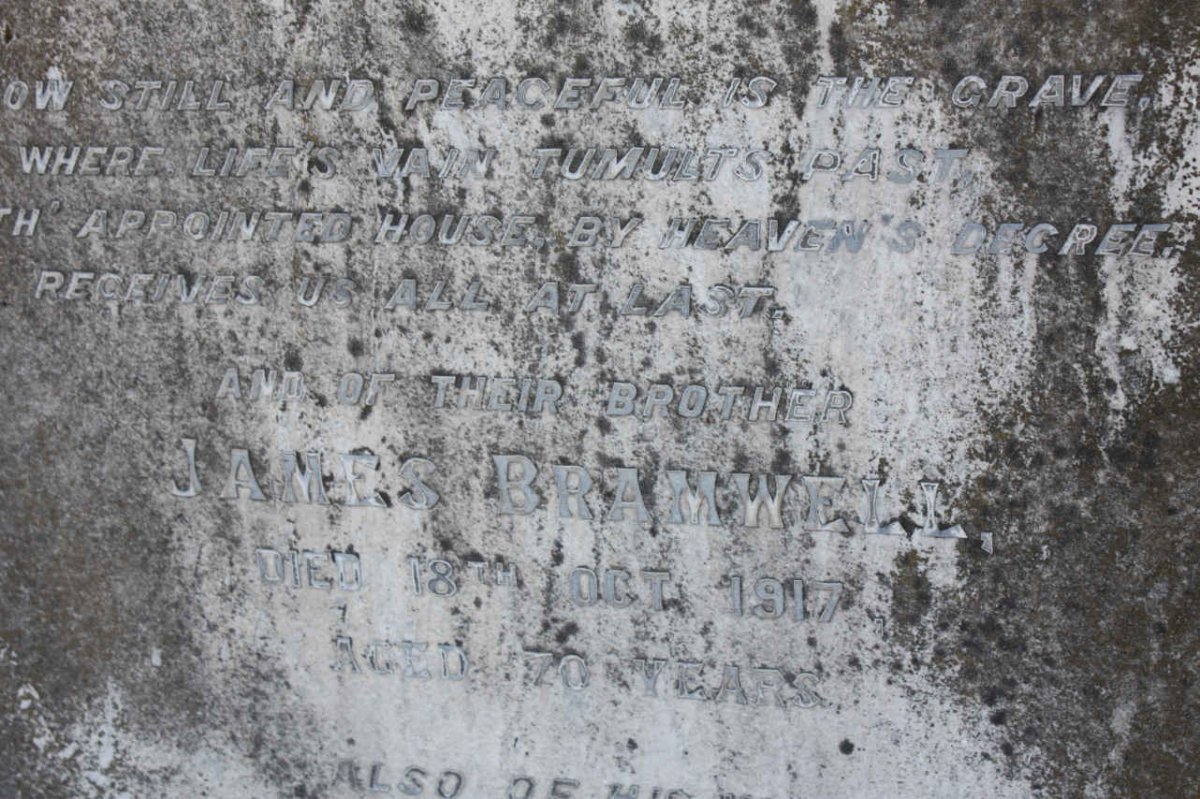 OW STILL AND PEACEFUL IS THE GRAVE,
WHERE LIFE'S VAIN TUMULTS PAST,
TH' APPOINTED HOUSE, BY HEAVEN'S DECREE,
RECEIVES US ALL AT LAST.
AND OF THEIR BROTHER
JAMES BRAMWELL,
DIED 18TH OCT 1917
AGED 70 YEARS
ALSO OF HIS